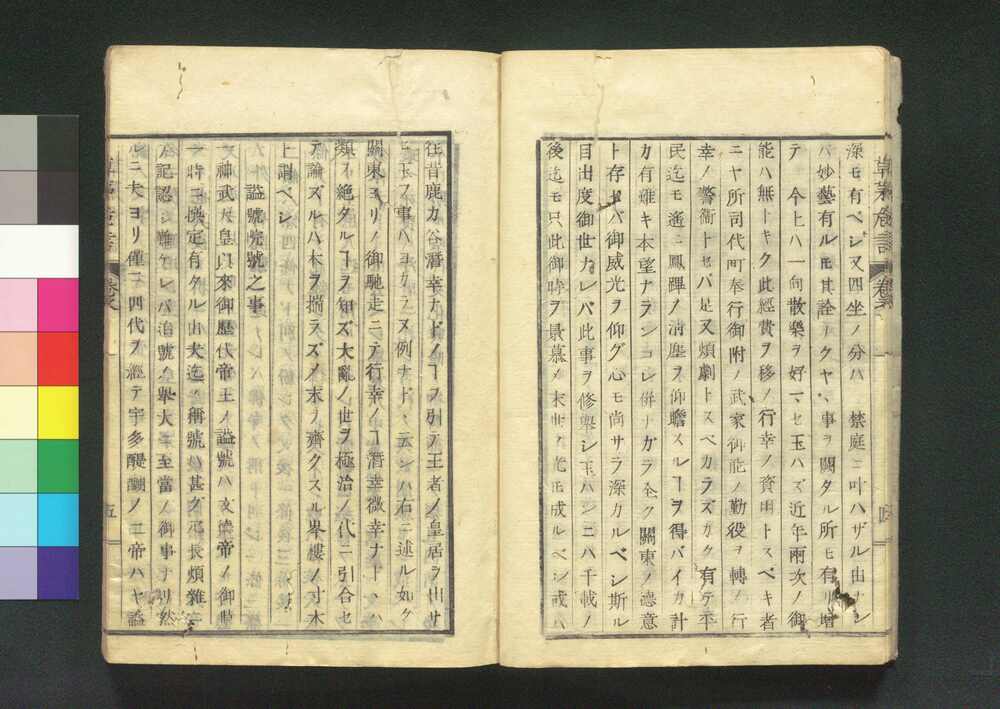 深モ有ベシ又四坐ノ分ハ 禁庭ニ叶ハザル由ナレ
バ妙藝有ルモ其詮ナクヤ、事ヲ闕タル所モ有リ増
テ 今上ハ一向散樂ヲ好マセ玉ハズ近年兩次ノ御
能ハ無トキク此經費ヲ移ノ行幸ノ資用トスベキ者
ニヤ所司代町奉行御附ノ武家御能ノ勤役ヲ轉ノ行
幸ノ警衛トセバ是又煩劇トスベカラズカク有テ平
民迄モ遙ニ鳳輦ノ清塵ヲ仰瞻スルヿヲ得バイカ計
カ有難キ本望ナランコレ併ナガラ全ク關東ノ德意
ト存ドバ御威光ヲ仰グ心モ尚サラ深カルベシ斯ル
目出度御世ナレバ此事ヲ修擧シ玉ハンニハ千載ノ
後迄モ只此御時ヲ景慕ノ末世ノ光モ成ルベシ或ハ
往昔鹿カ谷潛幸ナドノヿヲ引テ王者ノ皇居ヲ出サ
セ玉フ事ハヨカラヌ例ナド、云ンハ右ニ述ル如ク
關東ヨリノ御馳走ニテ行幸ノヿ潛幸微幸ナドハ
類ヲ絶タルヿヲ知ズ大亂ノ世ヲ極治ノ代ニ引合セ
テ論ズルハ本ヲ揣ラズノ末ヲ齊クスル岑樓ノ寸木
ト謂ベシ
謚號院號之事
一神武天皇以來御歴代帝王ノ謚號ハ文德帝ノ御
一時ニ撰定有タル由夫迄ノ稱號ハ甚ダ冗長煩雜ニ
ノ記認シ難ケレバ治號ノ擧大ニ至當ノ御事ナリ然
ルニ夫ヨリ僅ニ四代ヲ經テ宇多醍醐ノ二帝ハヤ謚
草茅危言
五